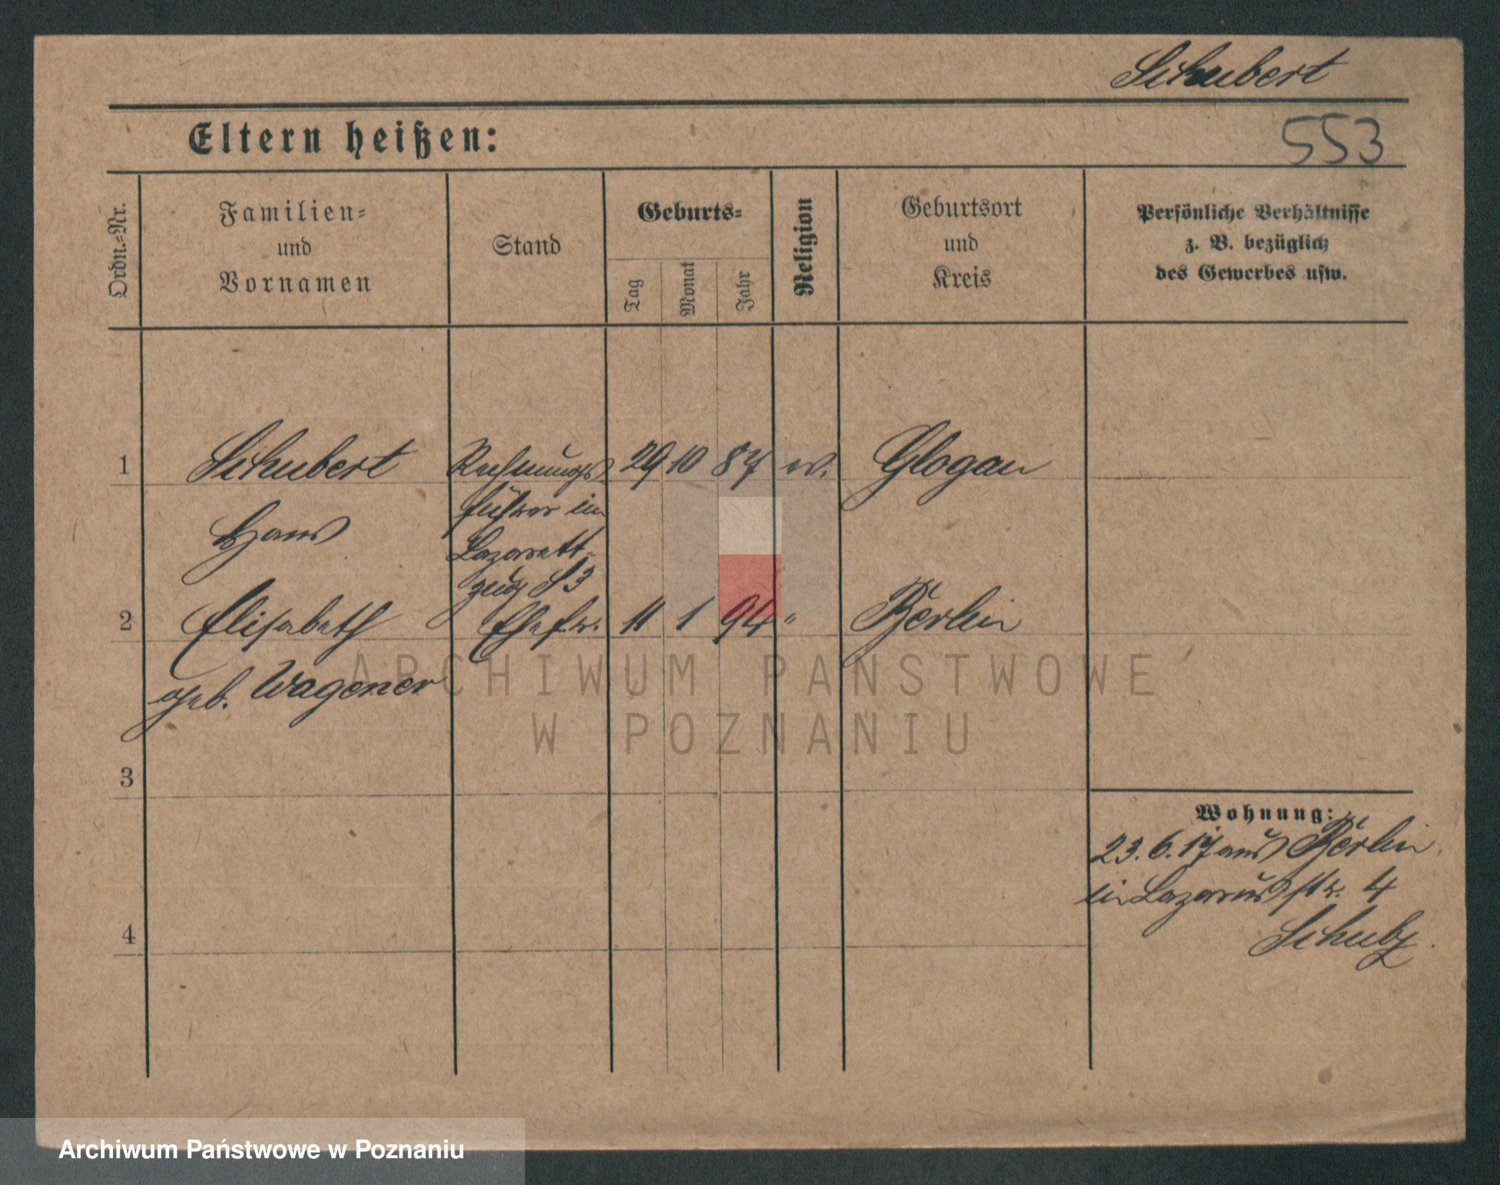 Schubert
Eltern heißen:
553
Ordn.-Nr.
Familien-
und
Vornamen
Stand
Geburts-
Tag
Monat
Jahr
Religion
Geburtsort
und
Kreis
Persönliche Verhältnisse
z. B. bezüglich
des Gewerbes usw.
1
Schubert
Hans
Rechnungs
führer im
Lazarett-
zug S 3
29 10 87
ev.
Glogau
2
Elisabeth
geb. Wagener
Ehefr.
11 1 94
"
Berlin
3
4
Wohnung:
23.6.17 aus Berlin
in Lazarusstr. 4
ARCHIWUM PAŃSTWOWE
W POZNANIU
Archiwum Państwowe w Poznaniu